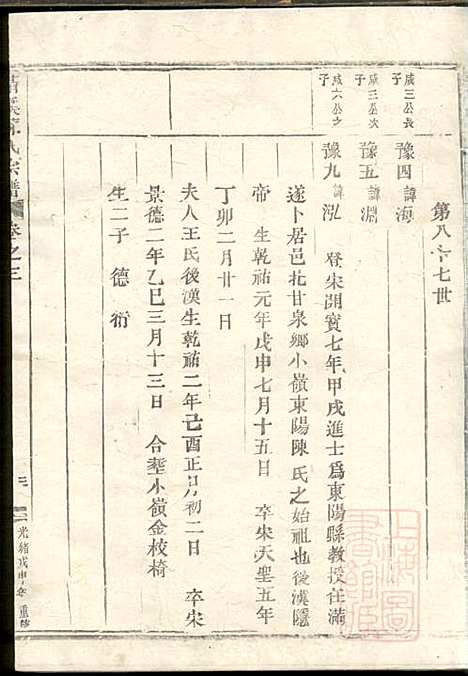 第八十七世
咸三公長子
豫四諱海
咸三公次子
豫五諱淵
咸六公之子
豫九諱泓 登宋開寶七年甲戌進士爲東陽縣教授任滿
遂卜居邑北甘泉鄉小嶺東陽陳氏之始祖也後漢隱
帝 生乾祐元年戊申七月十五日 卒宋天聖五年
丁卯二月廿一日
夫人王氏後漢生乾祐二年己酉正月初二日 卒宋
景德二年乙巳三月十三日 合塟小嶺金校椅
生二子 德 術
氏宗譜
卷之三
光緒戊申年重修
上海圖書館藏